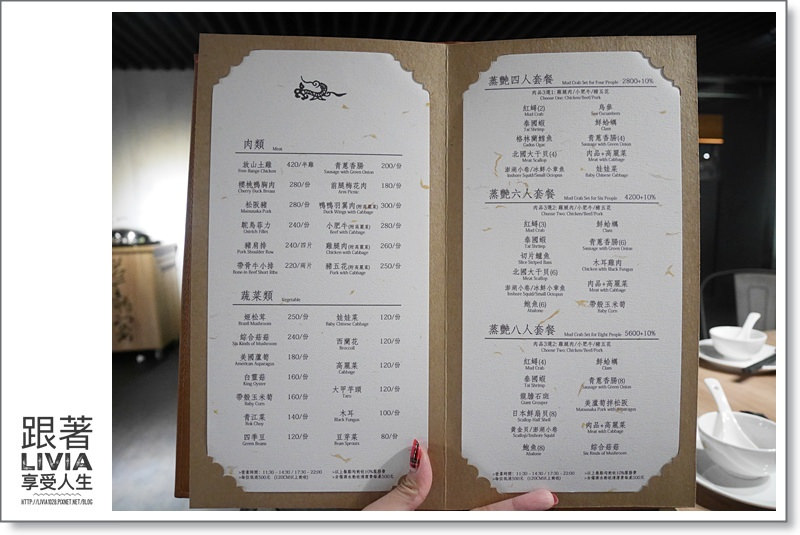 肉類 Meat
放山土雞 420/半雞
Free-Range Chicken
櫻桃鴨胸肉 280/份
Cherry Duck Breast
松阪豬 280/份
Matsusaka Pork
鴕鳥菲力 240/份
Ostrich Fillet
豬肩排 240/四片
Pork Shoulder Row
帶骨牛小排 220/兩片
Bone-in Beef Short Ribs
青蔥香腸 200/份
Sausage with Green Onion
前腿梅花肉 180/份
Arm Picnic
鴨鴨羽翼肉(附高麗菜) 300/份
Duck Wings with Cabbage
小肥牛(附高麗菜) 280/份
Beef with Cabbage
雞腿肉(附高麗菜) 260/份
Chicken with Cabbage
豬五花(附高麗菜) 250/份
Pork with Cabbage
蔬菜類 Vegetable
姬松茸 250/份
Brazil Mushroom
綜合菇菇 240/份
Six Kinds of Mushroom
美國蘆筍 180/份
American Asparagus
白靈菇 160/份
King Oyster
帶殼玉米筍 160/份
Baby Corn
青江菜 140/份
Bok Choy
四季豆 120/份
Green Beans
娃娃菜 120/份
Baby Chinese Cabbage
西蘭花 120/份
Broccoli
高麗菜 120/份
Cabbage
大甲芋頭 120/份
Taro
木耳 100/份
Black Fungus
豆芽菜 80/份
Bean Sprouts
»營業時間：11:30 - 14:30 / 17:30 - 22:00
»每位低消500元 (120CM以上需低)
»以上餐點均需收10%服務費
蒸艷四人套餐 Mud Crab Set for Four People 2800+10%
肉品3選1: 雞腿肉/小肥牛/豬五花
Choose One: Chicken/Beef/Pork
紅蟳(2)
Mud Crab
泰國蝦
Tai Shrimp
格林蘭鱈魚
Gadus Ogac
北國大干貝(4)
Meat Scallop
澎湖小卷/冰鮮小章魚
Inshore Squid/Small Octopus
烏參
Spa Cucumbers
鮮蛤蠣
Clam
青蔥香腸(4)
Sausage with Green Onion
肉品+高麗菜
Meat with Cabbage
娃娃菜
Baby Chinese Cabbage
蒸艷六人套餐 Mud Crab Set for Six People 4200+10%
肉品3選2: 雞腿肉/小肥牛/豬五花
Choose Two: Chicken/Beef/Pork
紅蟳(3)
Mud Crab
泰國蝦
Tai Shrimp
切片鱸魚
Slice Striped Bass
北國大干貝(6)
Meat Scallop
澎湖小卷/冰鮮小章魚
Inshore Squid/Small Octopus
鮑魚(6)
Abalone
鮮蛤蠣
Clam
青蔥香腸(6)
Sausage with Green Onion
木耳雞肉
Chicken with Black Fungus
肉品+高麗菜
Meat with Cabbage
帶殼玉米筍
Baby Corn
蒸艷八人套餐 Mud Crab Set for Eight People 5600+10%
肉品3選2: 雞腿肉/小肥牛/豬五花
Choose Two: Chicken/Beef/Pork
紅蟳(4)
Mud Crab
泰國蝦
Tai Shrimp
龍膽石斑
Giant Grouper
日本鮮扇貝(8)
Scallop Half Shell
黃金貝/澎湖小卷
Scallop/Inshore Squid
鮑魚(8)
Abalone
鮮蛤蠣
Clam
青蔥香腸(8)
Sausage with Green Onion
美蘆筍拌松阪
Matsusaka Pork with Asparagus
肉品+高麗菜
Meat with Cabbage
綜合菇菇
Six Kinds of Mushroom
»營業時間：11:30 - 14:30 / 17:30 - 22:00
»每位低消500元 (120CM以上需低)
»以上餐點均需收10%服務費
跟著
LIVIA
享受人生
HTTP://LIVIA1028.PIXNET.NET/BLOG